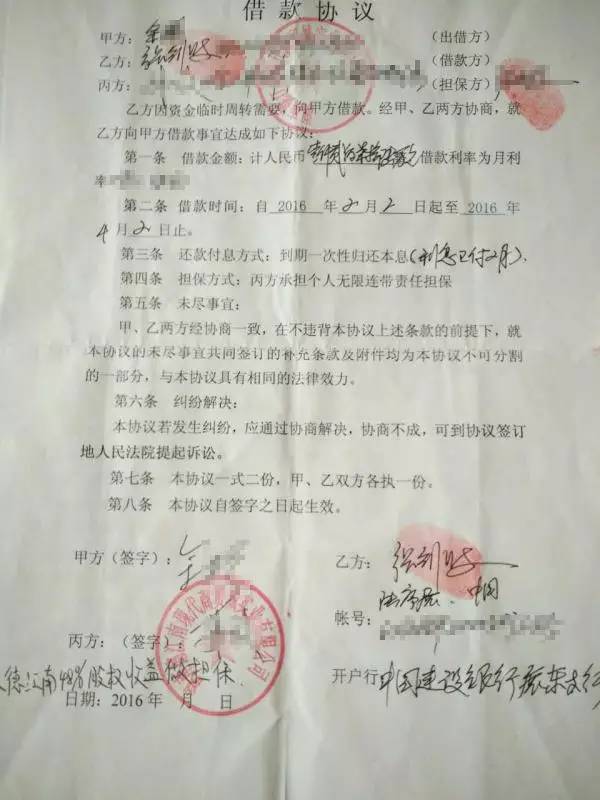 借款协议
甲方：金 （出借方）
乙方：张剑 （借款方）
丙方： （担保方）
乙方因资金临时周转需要，向甲方借款。经甲、乙两方协商，就
乙方向甲方借款事宜达成如下协议：
第一条 借款金额：计人民币 借款利率为月利
率
第二条 借款时间：自 2016 年2月2日起至 2016 年
4月2日止。
第三条 还款付息方式：到期一次性归还本息（利息已付2月）.
第四条 担保方式：丙方承担个人无限连带责任担保
第五条 未尽事宜：
甲、乙两方经协商一致，在不违背本协议上述条款的前提下，就
本协议的未尽事宜共同签订的补充条款及附件均为本协议不可分割
的一部分，与本协议具有相同的法律效力。
第六条 纠纷解决：
本协议若发生纠纷，应通过协商解决，协商不成，可到协议签订
地人民法院提起诉讼。
第七条 本协议一式二份，甲、乙双方各执一份。
第八条 本协议自签字之日起生效。
甲方（签字）：金 乙方：张剑
帐号：
丙方：（签字）：
德江南48%股权收益做担保
开户行 中国建设银行振东支行
日期：2016年 月 日